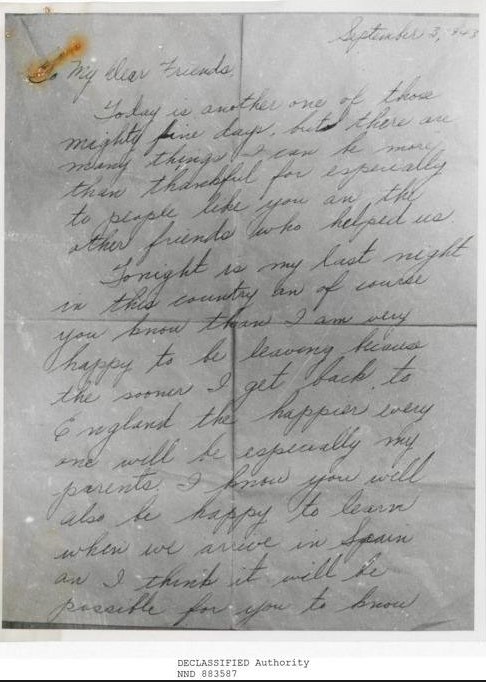 September 3, 1943
My dear Friends,
Today is another one of those
mighty fine days, but there are
many things I can be more
than thankful for especially
to people like you an the
other friends who helped us.
Tonight is my last night
in this country an of course
you know than I am very
happy to be leaving because
the sooner I get back to
England the happier every
one will be especially my
parents. I know you will
also be happy to learn
when we arrive in Spain
an I think it will be
possible for you to know
DECLASSIFIED Authority
NND 883587